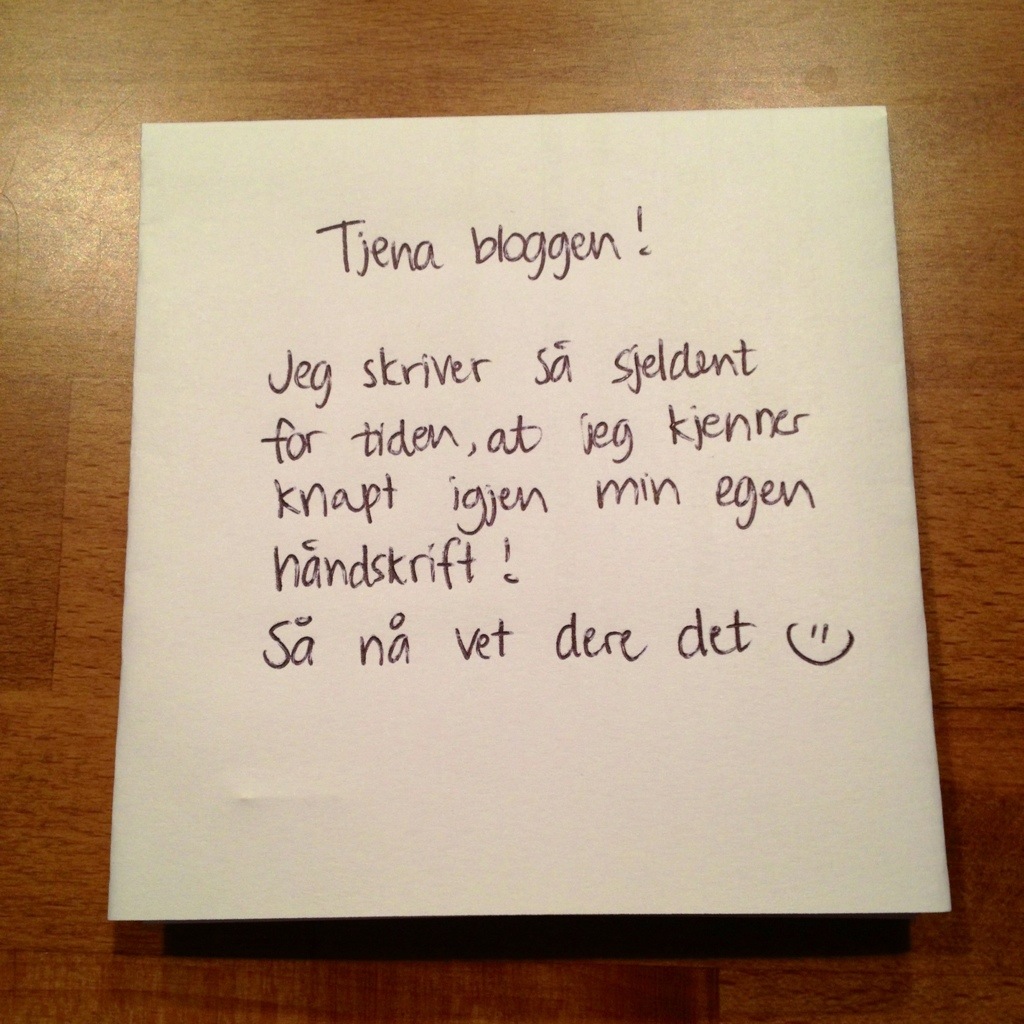 Tjena bloggen!
Jeg skriver så sjeldent
for tiden, at jeg kjenner
knapt igjen min egen
håndskrift!
Så nå vet dere det